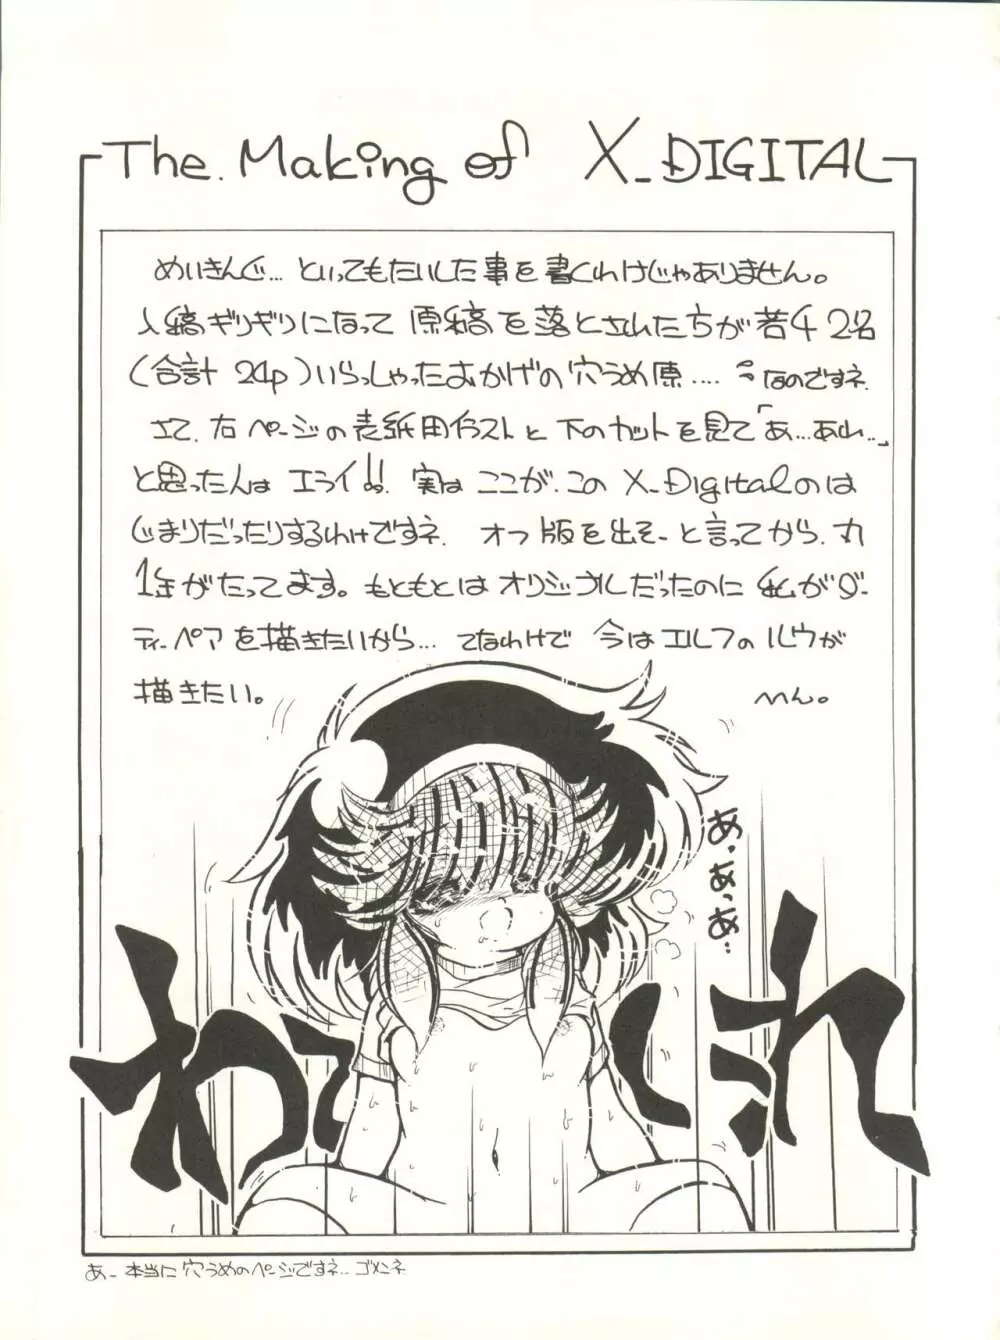 The Making of X_DIGITAL
めいきんぐ… といってもたいした事を書くわけじゃありません。
入稿ギリギリになって 原稿を落とされた方が若干2名
(合計 24p)いらっしゃったおかげの穴うめ原…. なのですネ.
さて、右ページの表紙用イラストと下のカットを見て「あ…あれ…」
と思った人は エライ!! 実は ここが、この X_Digitalのは
じまりだったりするわけですネ. オフ版を出そーと言ってから、丸
1年がたってます。もともとは オリジナルだったのに 私がダー
ティーペアを描きたいから… てなわけで 今はエルフのルウが
描きたい。 へん。
あ、あっあ…
わ れ
あー 本当に穴うめのページですネ… ゴメンネ